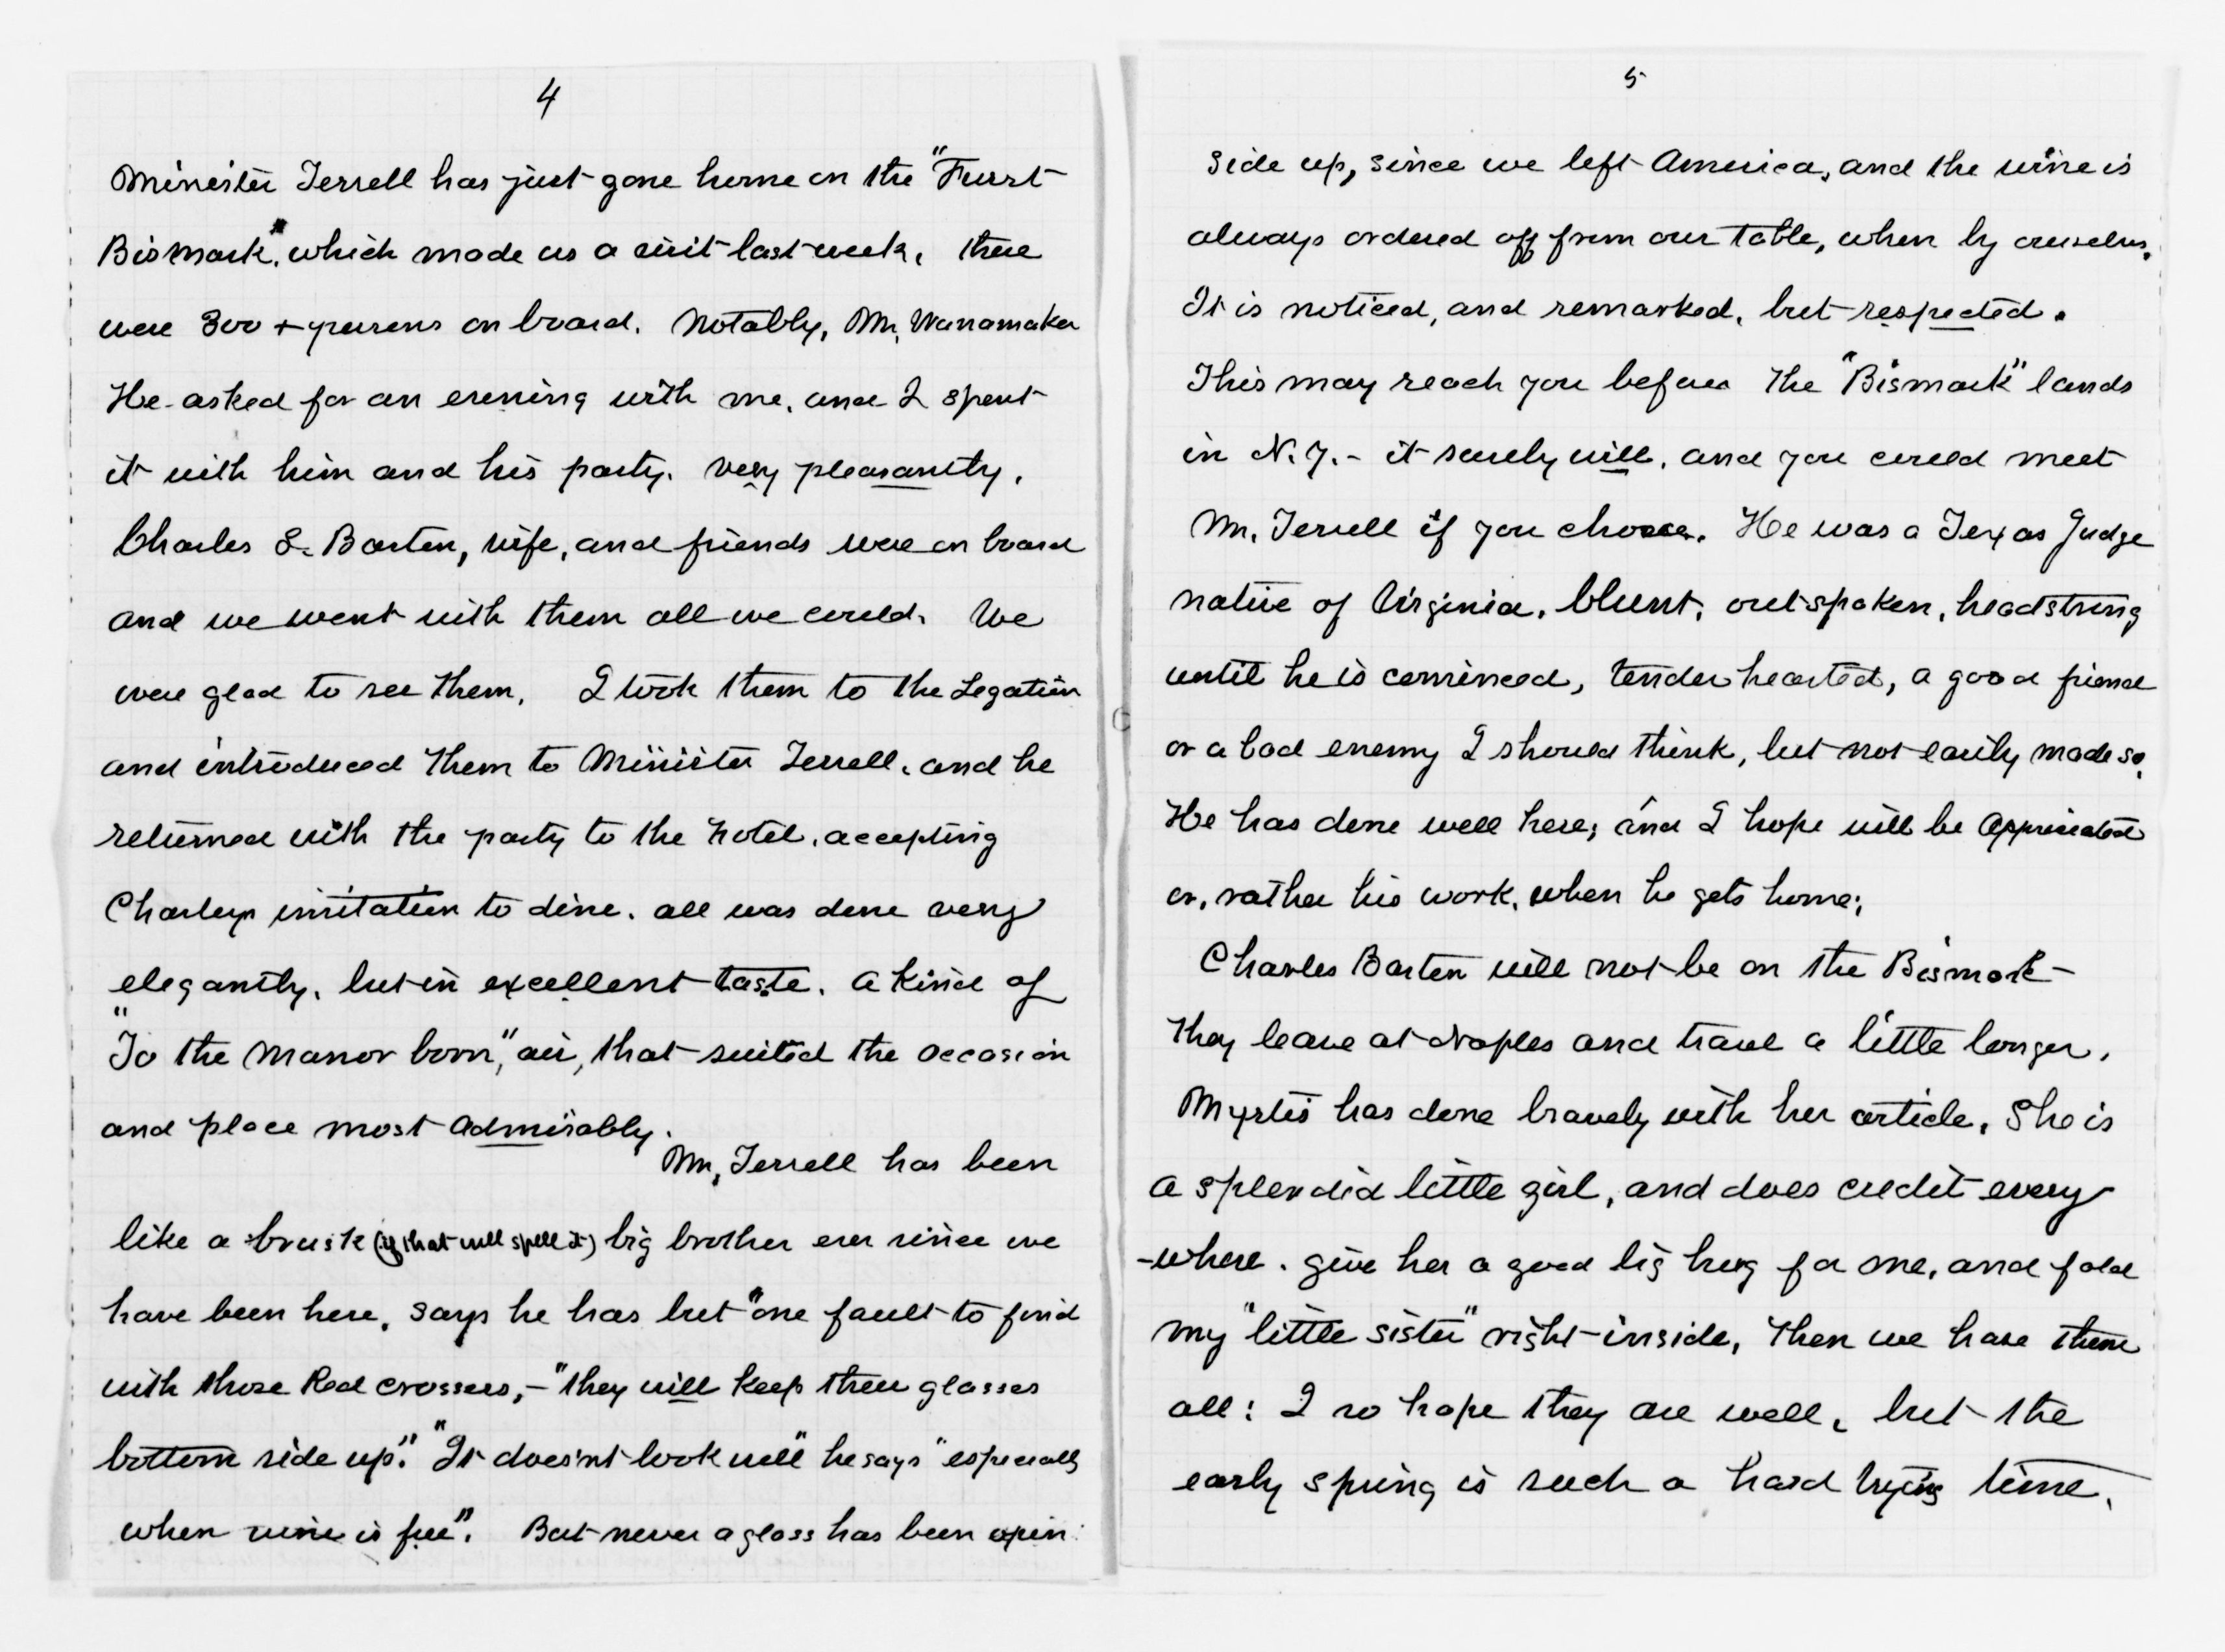 4
Minister Terrell has just gone home on the "Furst
Bismark", which made us a visit last week, there
were 300 + persons on board. Notably, Mr, Wanamaker
He asked for an evening with me, and I spent
it with him and his party. very pleasantly,
Charles S. Barton, wife, and friends were on board
and we went with them all we could. We
were glad to see them. I took them to the Legation
and introduced them to Minister Terrell, and he
returned with the party to the hotel, accepting
Charleys invitation to dine. all was done very
elegantly, but in excellent taste. A kind of
"To the manor born," air, that suited the occasion
and place most admirably.
Mr, Terrell has been
like a brusk (if that will spell it) big brother ever since we
have been here, says he has but "one fault to find
with those Red crossers, - "they will keep their glasses
bottom side up". "It does'nt look well" he says "especially
when wine is free". But never a glass has been open
5
side up, since we left America, and the wine is
always ordered off from our table, when by ourselves.
It is noticed, and remarked, but respected.
This may reach you before the "Bismark" lands
in N.Y. - it surely will, and you could meet
Mr, Terrell if you choose. He was a Texas Judge
native of Virginia, blunt, outspoken, headstrong
until he is convinced, tender hearted, a good friend
or a bad enemy I should think, but not easily made so.
He has done well here; and I hope will be appreciated
or, rather his work, when he gets home;
Charles Barton will not be on the Bismark -
They leave at Naples and travel a little longer,
Myrtis has done bravely with her article, She is
a splendid little girl, and does credit every
-where. give her a good big hug for me, and fold
my "little sister" right inside, Then we have them
all: I so hope they are well, but the
early spring is such a hard trying time,